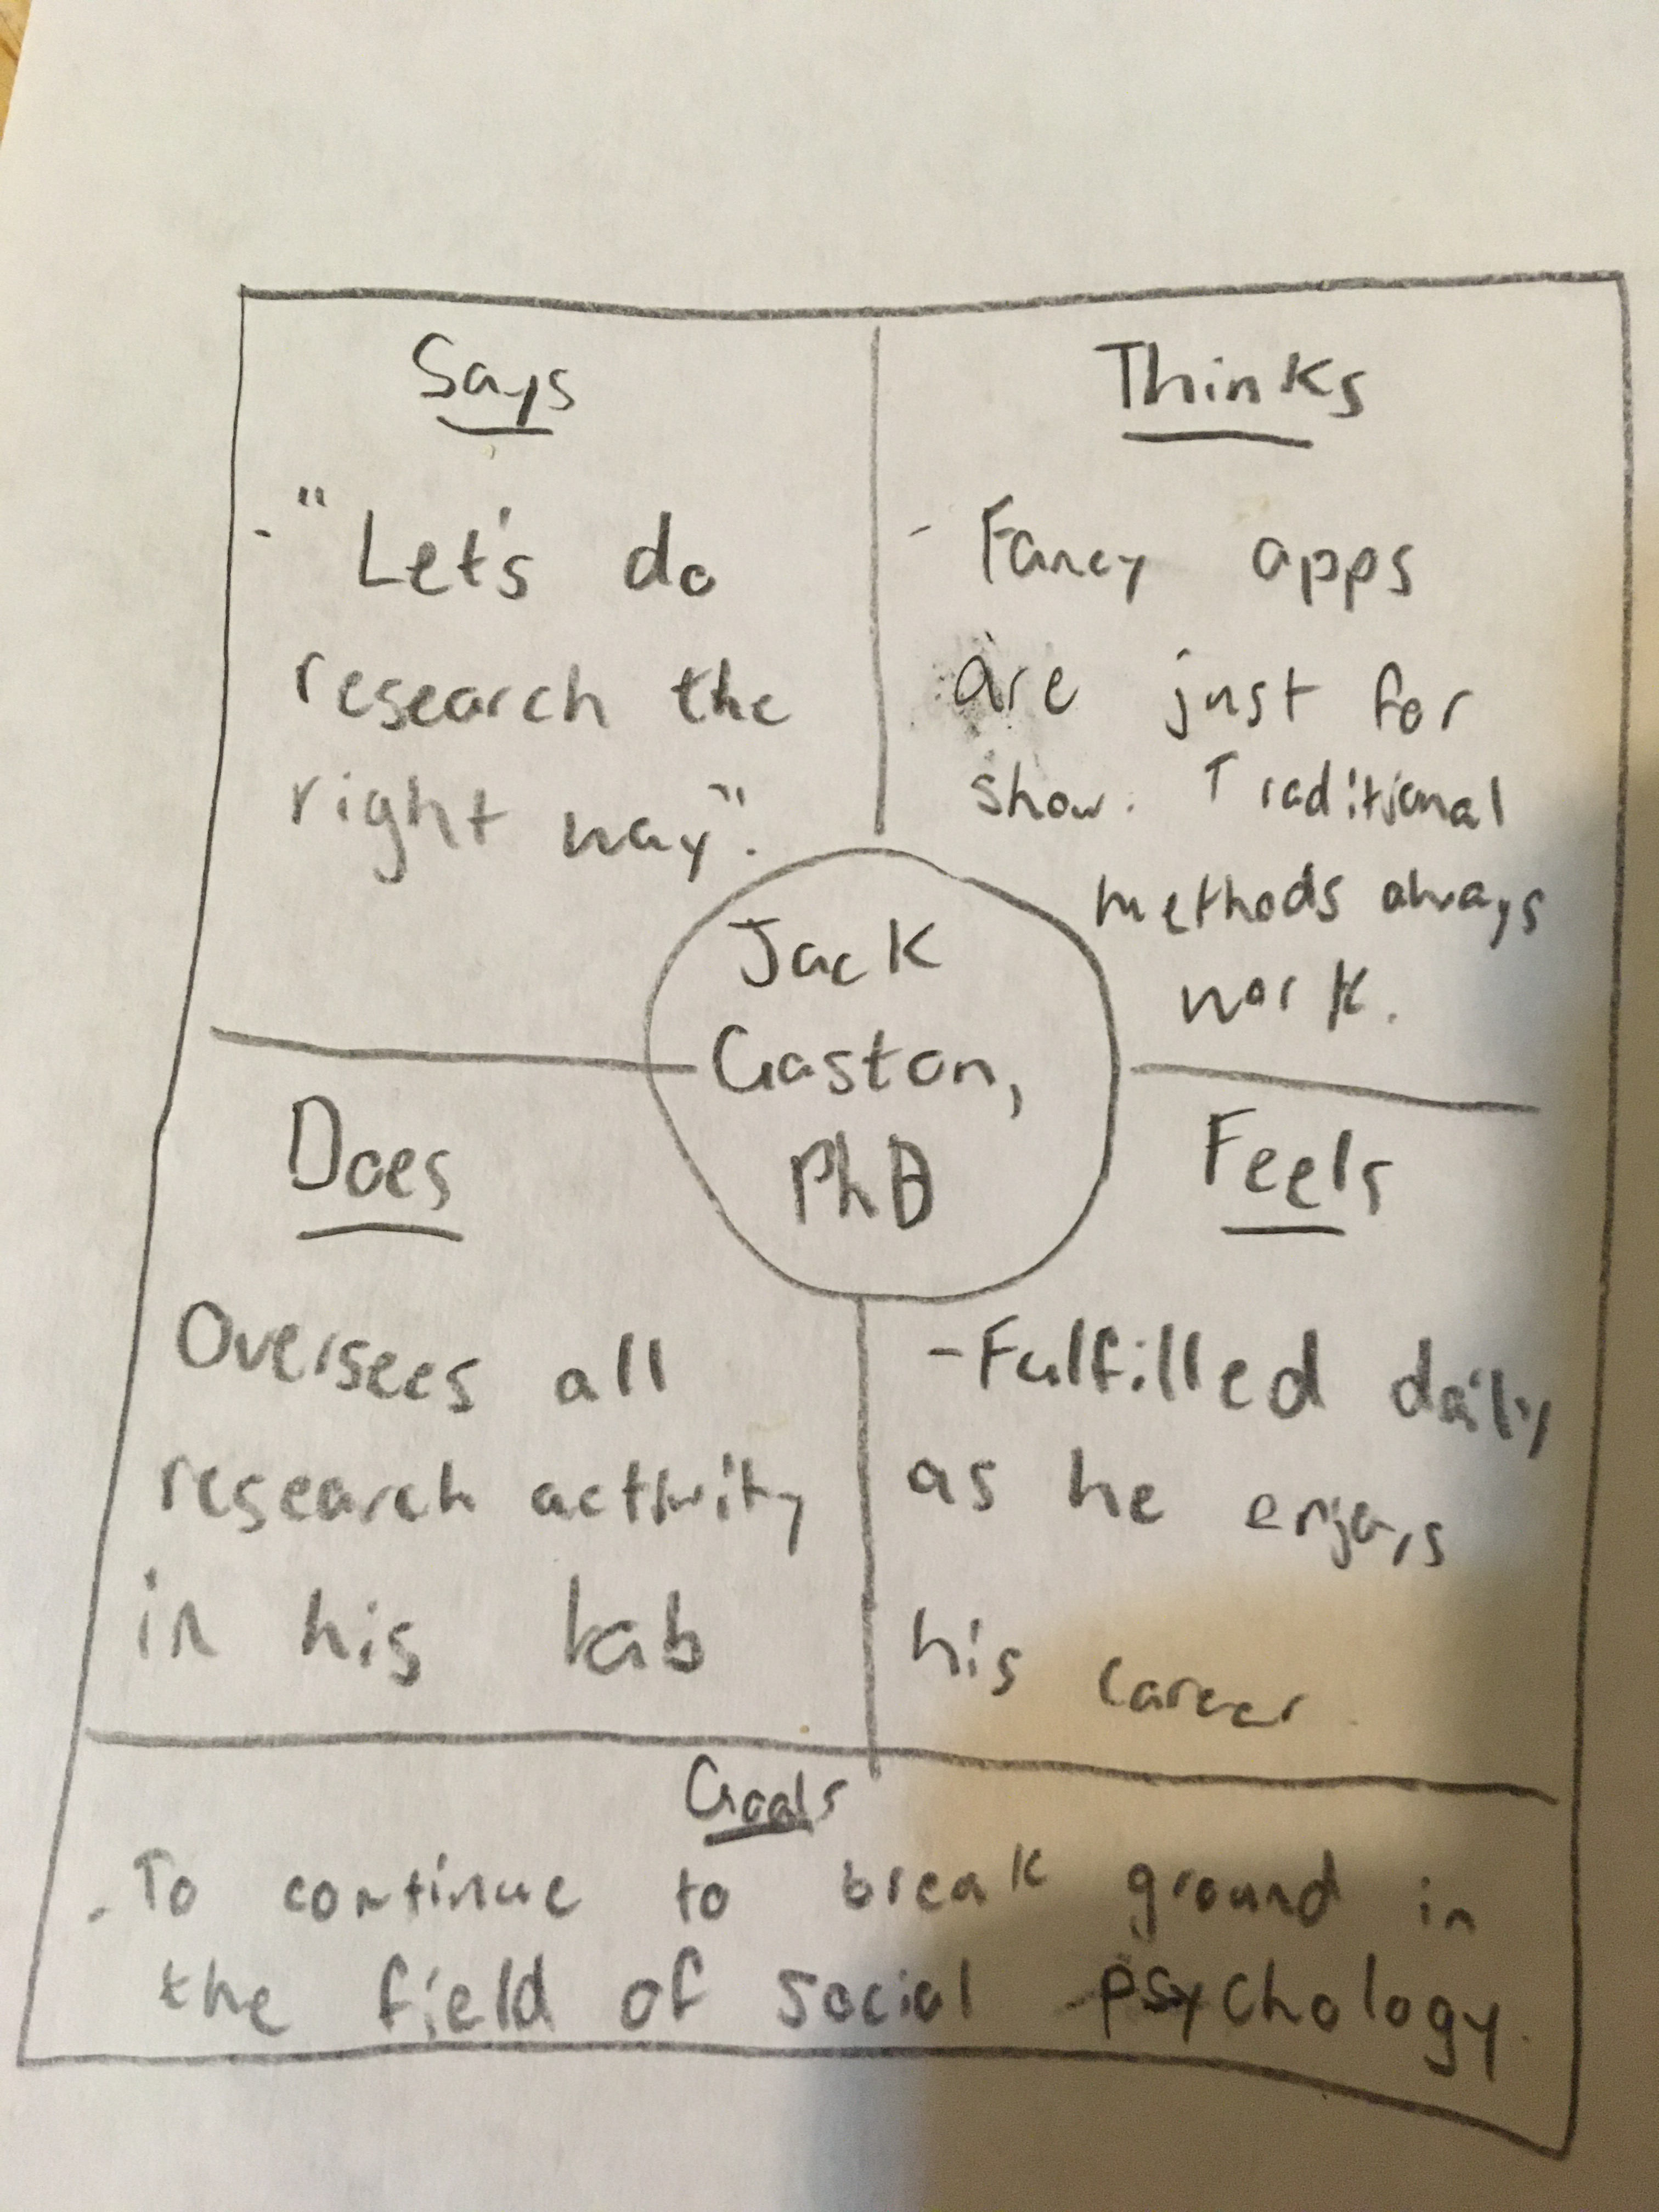 Says
- "Let's do
research the
right way".
Thinks
- Fancy apps
are just for
show. Traditional
methods always
work.
Jack
Gaston,
PhD
Does
Oversees all
research activity
in his lab
Feels
- Fulfilled daily
as he enjoys
his career.
Goals
- To continue to break ground in
the field of social psychology.